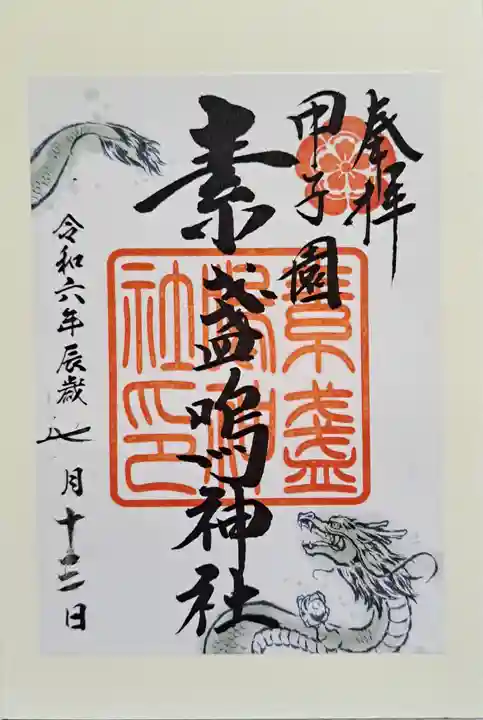 奉拝
甲子園
素盞嗚神社
素盞
嗚神
社印
令和六年辰歳七月十三日